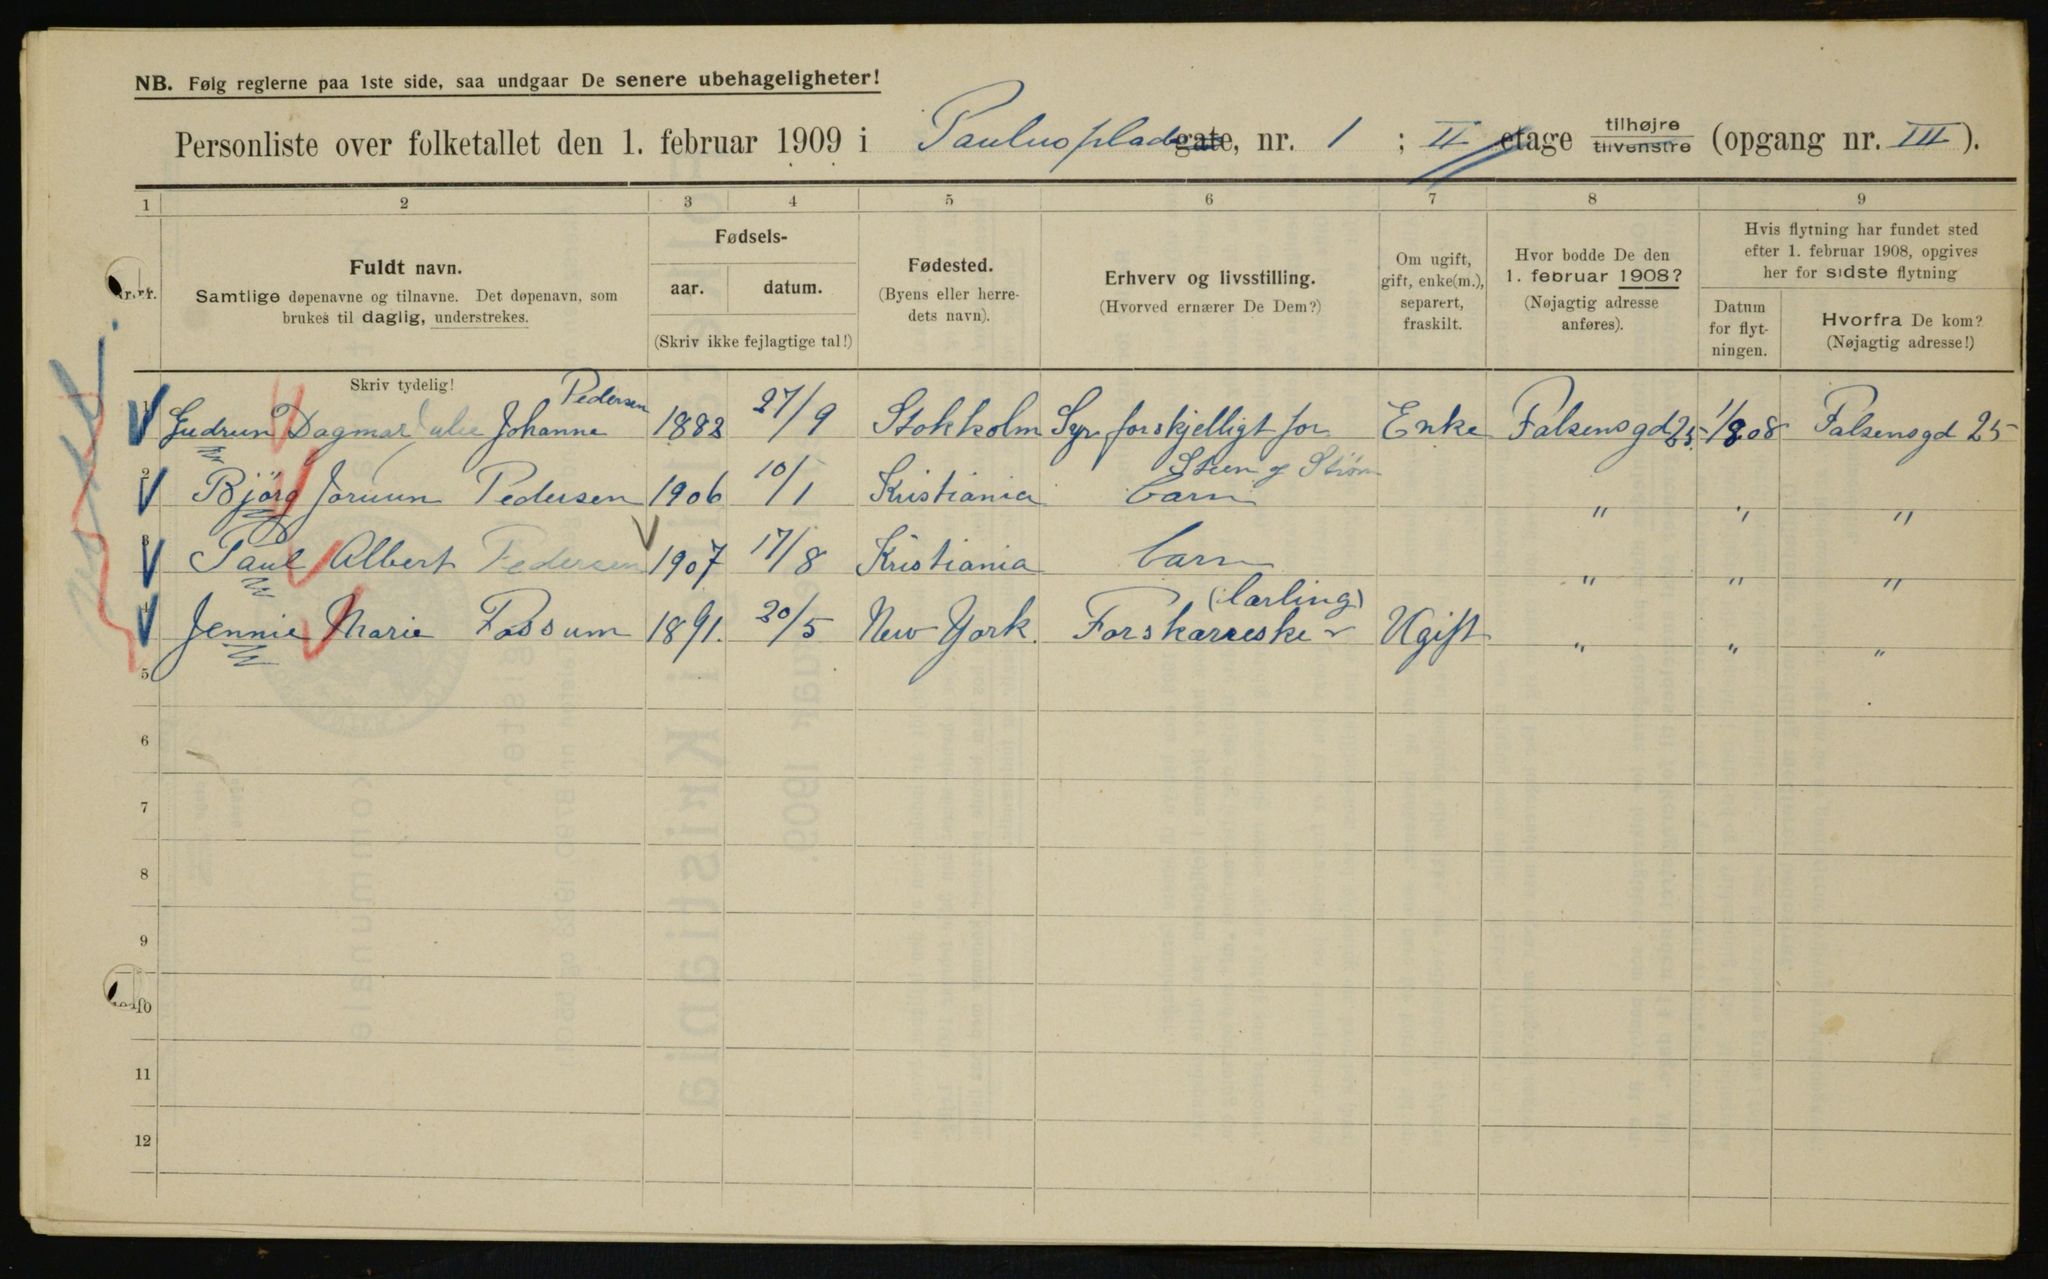 NB. Følg reglerne paa 1ste side, saa undgaar De senere ubehageligheter!
Personliste over folketallet den 1. februar 1909 i Paulusplads gate, nr. 1 ; II etage tilhøjre tilvenstre (opgang nr. III).
1 2 3 4 5 6 7 8 9
Nr. Fuldt navn. Samtlige døpenavne og tilnavne. Det døpenavn, som brukes til daglig, understrekes.
Fødsels- aar. datum. (Skriv ikke fejlagtige tal!)
Fødested. (Byens eller herredets navn).
Erhverv og livsstilling. (Hvorved ernærer De Dem?)
Om ugift, gift, enke(m.), separert, fraskilt.
Hvor bodde De den 1. februar 1908? (Nøjagtig adresse anføres).
Hvis flytning har fundet sted efter 1. februar 1908, opgives her for sidste flytning
Datum for flytningen. Hvorfra De kom? (Nøjagtig adresse!)
Skriv tydelig!
1 Gudrun Dagmar Julie Johanne Pedersen 1882 27/9 Stokkolm Syr forskjelligt for Steen & Strøm Enke Falsensgd 25 1/8 08 Falsensgd 25
2 Björg Jorunn Pedersen 1906 10/1 Kristiania barn " " "
3 Paul Albert Pedersen 1907 17/8 Kristiania barn " " "
4 Jennie Marie Fossum 1891. 20/5 New York. Forskærreske (lærling) Ugift " " "
5
6
7
8
9
10
11
12